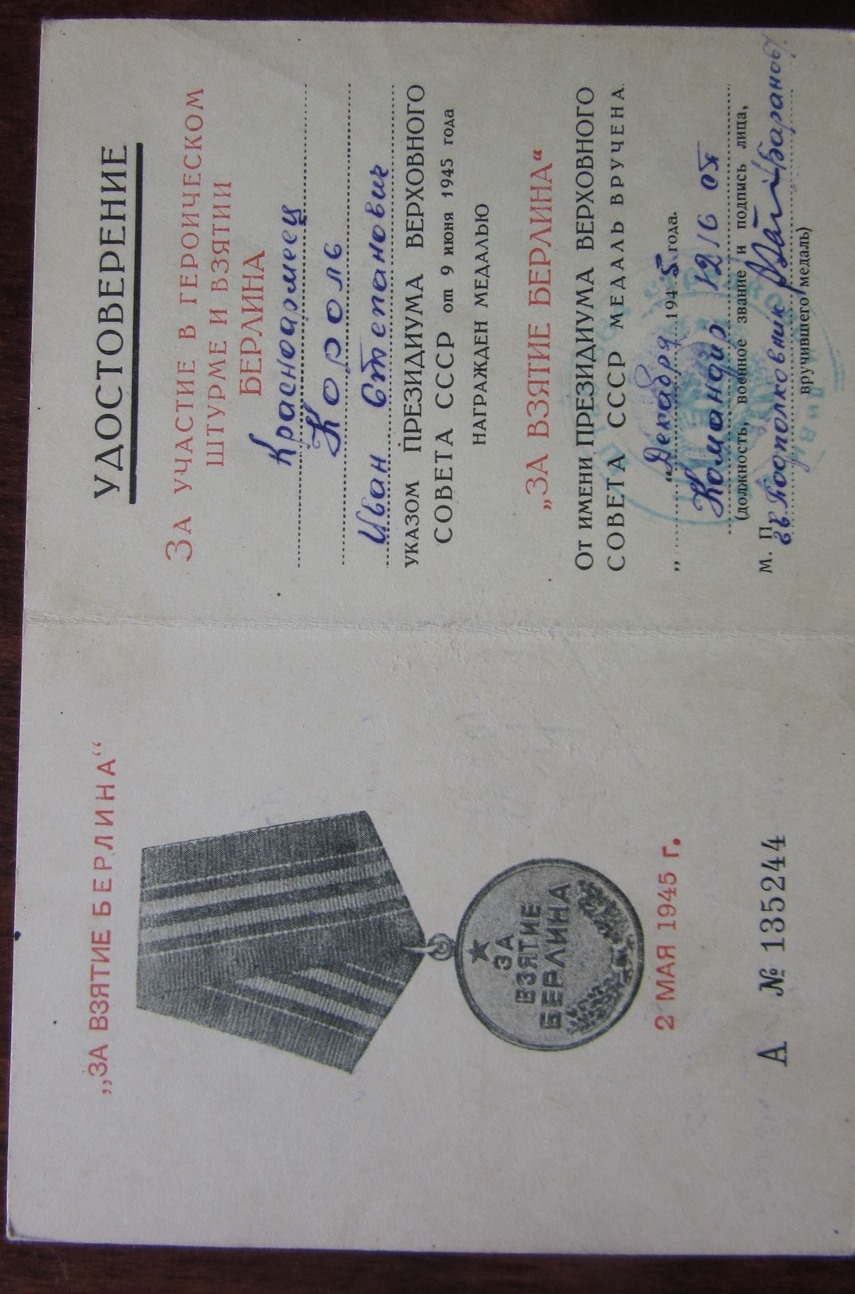 „ЗА ВЗЯТИЕ БЕРЛИНА“
ЗА
ВЗЯТИЕ
БЕРЛИНА
2 МАЯ 1945 г.
А № 135244
УДОСТОВЕРЕНИЕ
ЗА УЧАСТИЕ В ГЕРОИЧЕСКОМ
ШТУРМЕ И ВЗЯТИИ
БЕРЛИНА
Красноармеец
Король
Иван Степанович
УКАЗОМ ПРЕЗИДИУМА ВЕРХОВНОГО
СОВЕТА СССР от 9 июня 1945 года
НАГРАЖДЕН МЕДАЛЬЮ
„ЗА ВЗЯТИЕ БЕРЛИНА“
ОТ ИМЕНИ ПРЕЗИДИУМА ВЕРХОВНОГО
СОВЕТА СССР МЕДАЛЬ ВРУЧЕНА
„ “ Декабря 1945 года.
Командир 1216
(должность, военное звание и подпись лица,
М. П. гв. Подполковник /Баранов/
вручившего медаль)